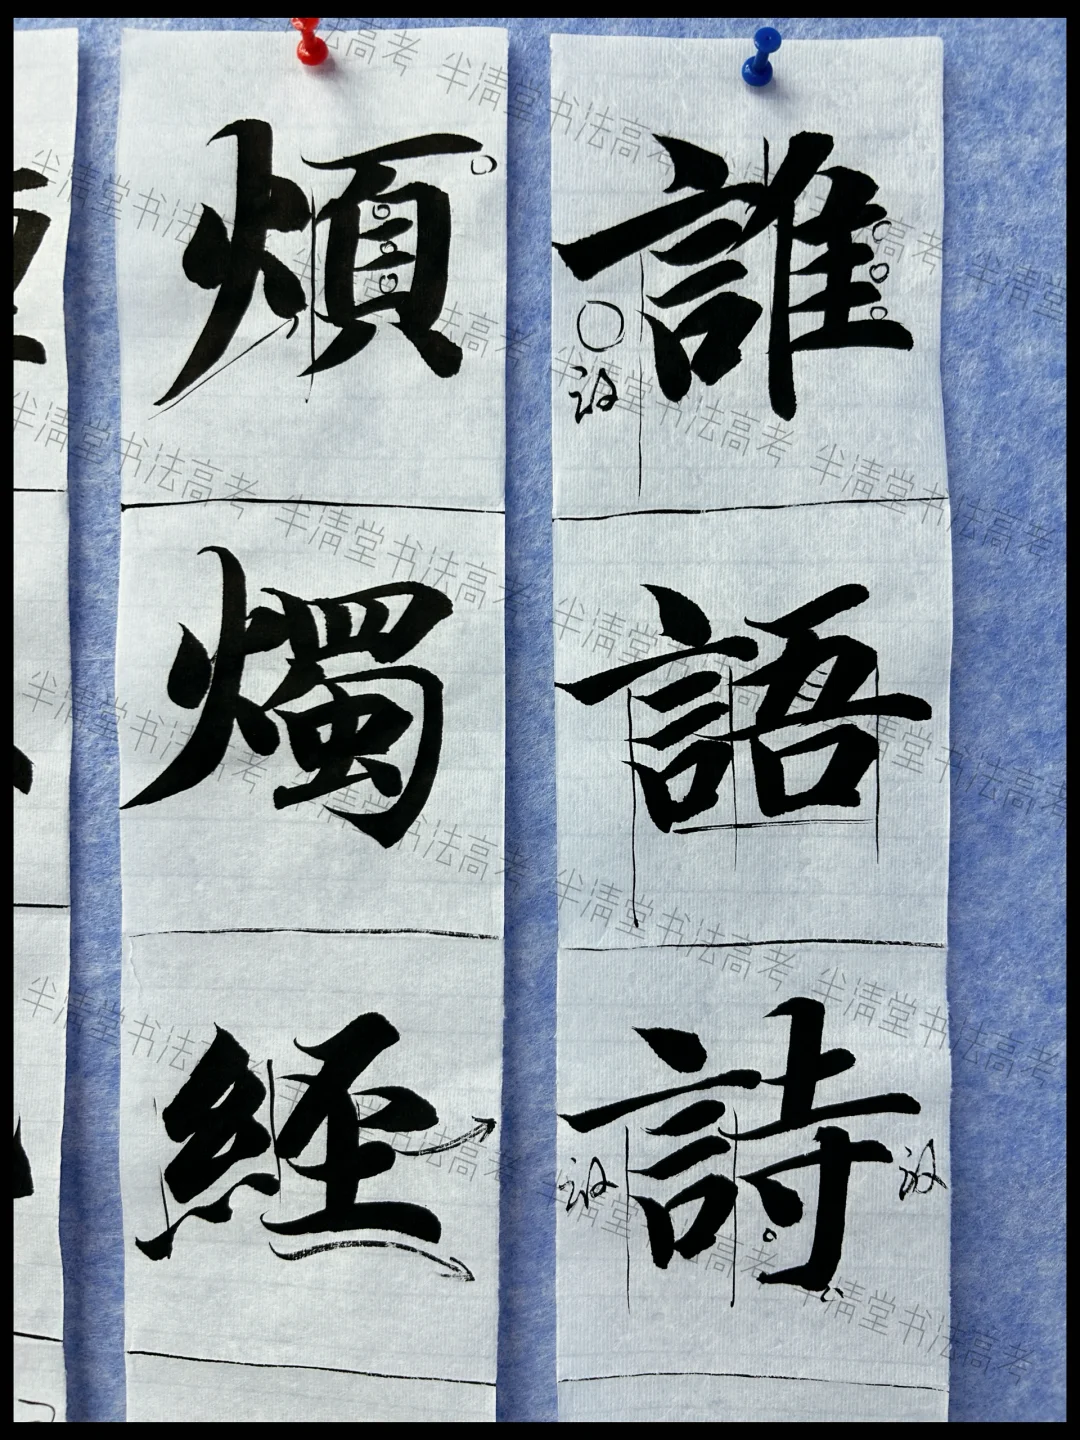 誰
語
詩
煩
燭
經
半清堂书法高考